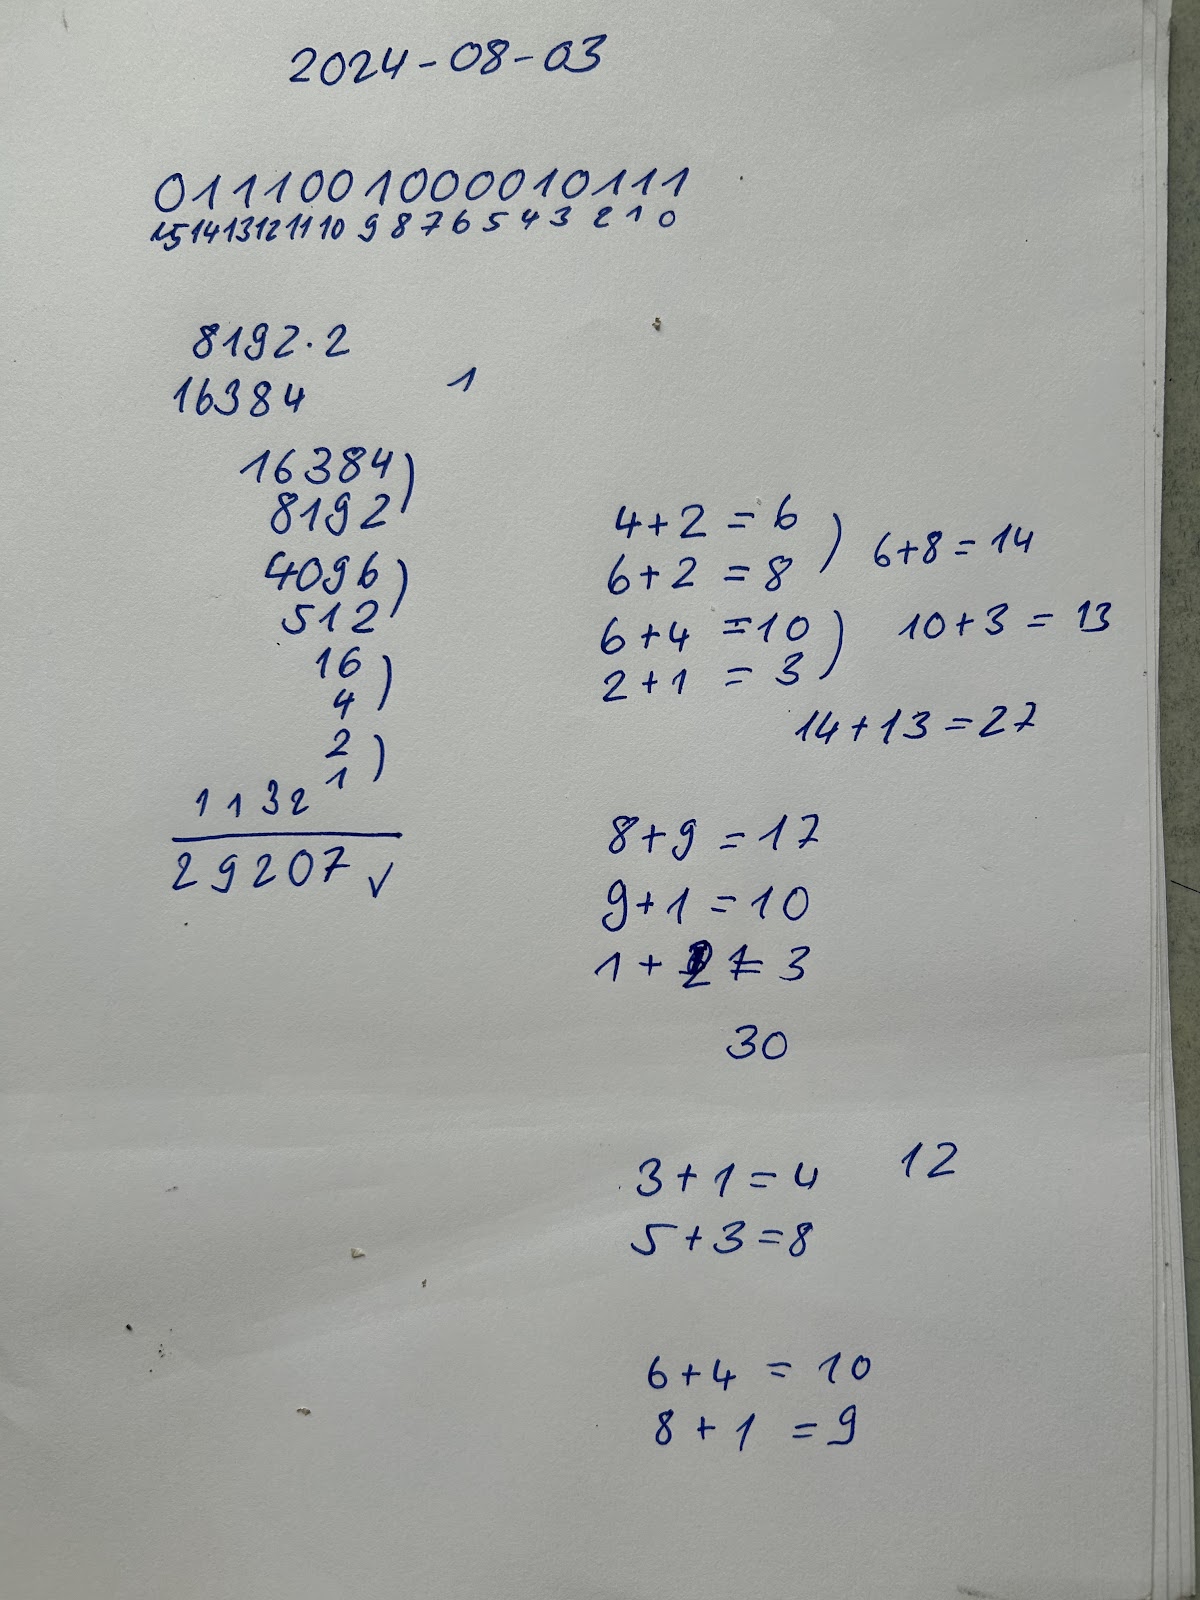 2024-08-03
0111001000010111
15 14 13 12 11 10 9 8 7 6 5 4 3 2 1 0
8192·2
16384
1
16384)
8192
4096)
512
16)
4
2)
1
1 1 3 2
29207 ✓
4+2 = 6
6+2 = 8 ) 6+8=14
6+4 =10
2+1 = 3 ) 10+3 = 13
14+13=27
8+9 =17
9+1=10
1+2 = 3
30
3+1=4
12
5+3=8
6+4 = 10
8+1 =9